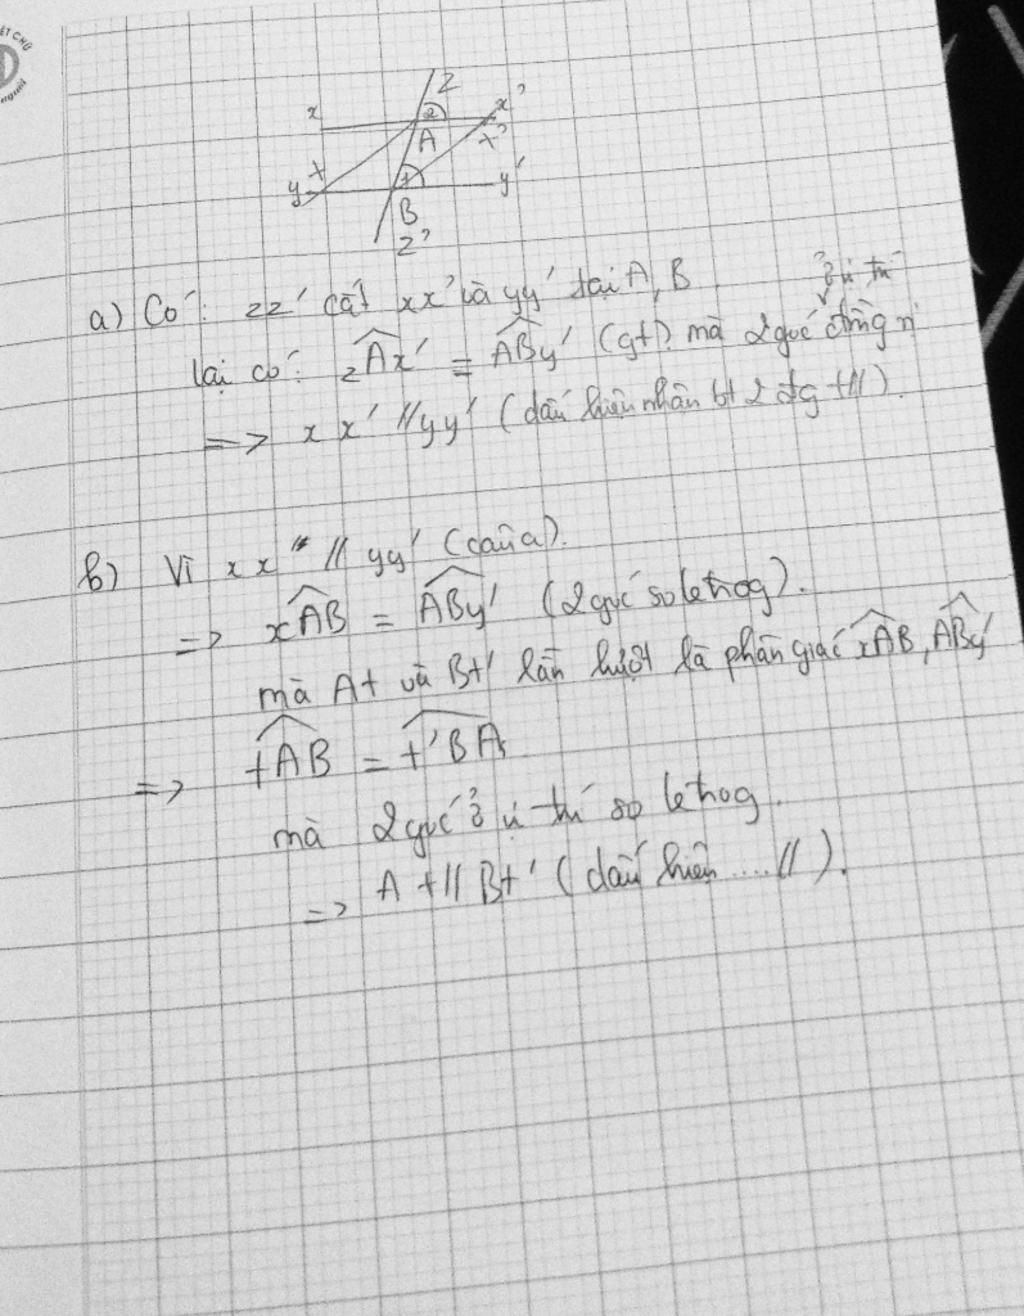 ẾT CHỮ
z
x
2
x'
A
t'
t
y
1
y'
B
z'
a) Có: zz' cắt xx' và yy' tại A, B
ở vị trí
lại có: zAx' = ABy' (gt). mà 2 góc đồng vị
=> xx' // yy' (dấu hiệu nhận bt 2 đg t //).
b) Vì xx' // yy' (câu a).
=> xAB = ABy' (2 góc so le trog).
mà At và Bt' lần lượt là phân giác xAB, ABy'
=> tAB = t'BA
mà 2 góc ở vị trí so le trog.
=> At // Bt' (dấu hiệu .... //).